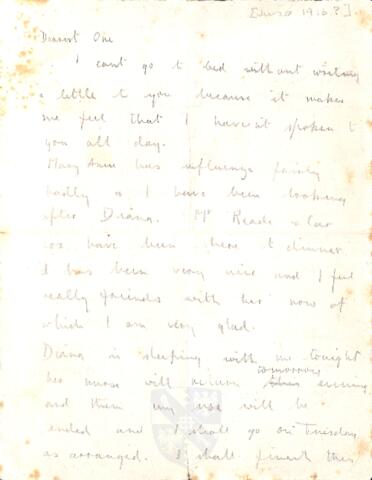 1916?]
Dearest One
I cant go to bed without writing
a little to you because it makes
me feel that I havent spoken to
you all day.
Mary Anne has influenza fairly
badly so I have been looking
after Diana. Mr Reade &
have been here to dinner.
has been very nice and I feel
really friends with her now of
which I am very glad.
Diana is sleeping with me tonight
her nurse will return tomorrow evening
and then my use will be
ended and I shall go on Tuesday
as arranged. I shall finish this